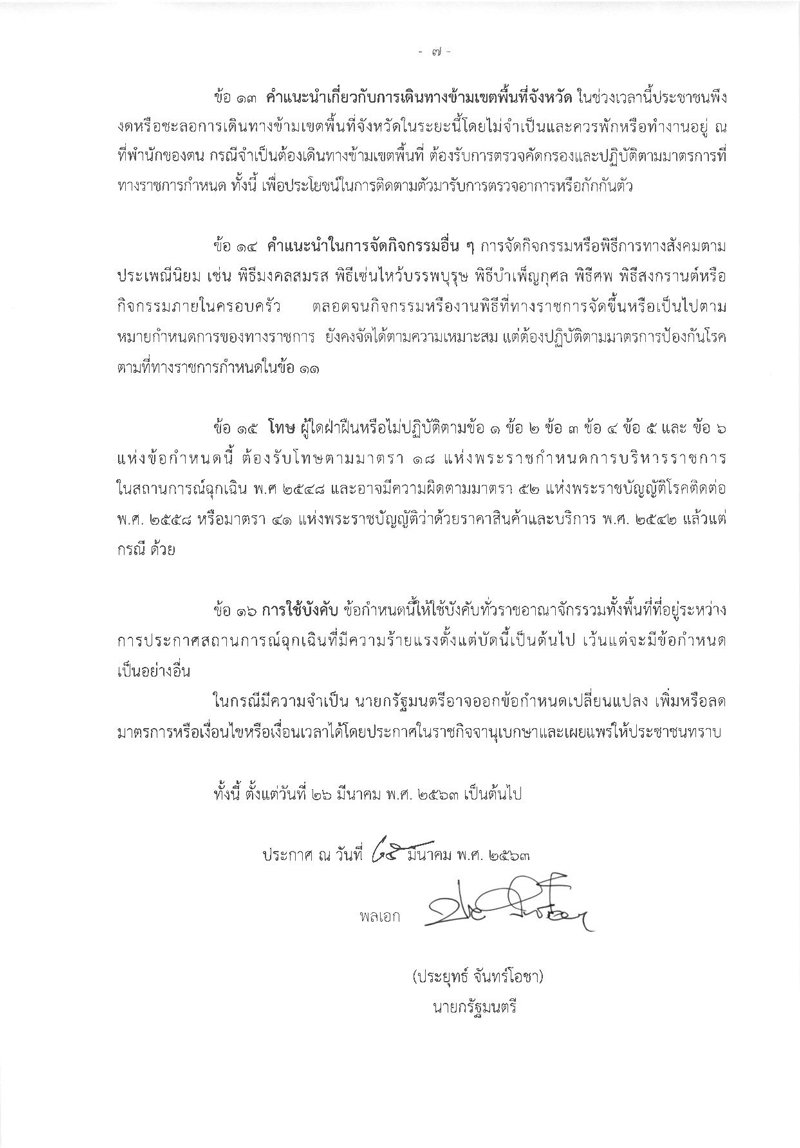 - ๗ -
ข้อ ๑๓ คำแนะนำเกี่ยวกับการเดินทางข้ามเขตพื้นที่จังหวัด ในช่วงเวลานี้ประชาชนพึง
งดหรือชะลอการเดินทางข้ามเขตพื้นที่จังหวัดในระยะนี้โดยไม่จำเป็นและควรพักหรือทำงานอยู่ ณ
ที่พำนักของตน กรณีจำเป็นต้องเดินทางข้ามเขตพื้นที่ ต้องรับการตรวจคัดกรองและปฏิบัติตามมาตรการที่
ทางราชการกำหนด ทั้งนี้ เพื่อประโยชน์ในการติดตามตัวมารับการตรวจอาการหรือกักกันตัว
ข้อ ๑๔ คำแนะนำในการจัดกิจกรรมอื่น ๆ การจัดกิจกรรมหรือพิธีการทางสังคมตาม
ประเพณีนิยม เช่น พิธีมงคลสมรส พิธีเซ่นไหว้บรรพบุรุษ พิธีบำเพ็ญกุศล พิธีศพ พิธีสงกรานต์หรือ
กิจกรรมภายในครอบครัว ตลอดจนกิจกรรมหรืองานพิธีที่ทางราชการจัดขึ้นหรือเป็นไปตาม
หมายกำหนดการของทางราชการ ยังคงจัดได้ตามความเหมาะสม แต่ต้องปฏิบัติตามมาตรการป้องกันโรค
ตามที่ทางราชการกำหนดในข้อ ๑๑
ข้อ ๑๕ โทษ ผู้ใดฝ่าฝืนหรือไม่ปฏิบัติตามข้อ ๑ ข้อ ๒ ข้อ ๓ ข้อ ๔ ข้อ ๕ และ ข้อ ๖
แห่งข้อกำหนดนี้ ต้องรับโทษตามมาตรา ๑๘ แห่งพระราชกำหนดการบริหารราชการ
ในสถานการณ์ฉุกเฉิน พ.ศ ๒๕๔๘ และอาจมีความผิดตามมาตรา ๕๒ แห่งพระราชบัญญัติโรคติดต่อ
พ.ศ. ๒๕๕๘ หรือมาตรา ๔๑ แห่งพระราชบัญญัติว่าด้วยราคาสินค้าและบริการ พ.ศ. ๒๕๔๒ แล้วแต่
กรณี ด้วย
ข้อ ๑๖ การใช้บังคับ ข้อกำหนดนี้ให้ใช้บังคับทั่วราชอาณาจักรรวมทั้งพื้นที่ที่อยู่ระหว่าง
การประกาศสถานการณ์ฉุกเฉินที่มีความร้ายแรงตั้งแต่บัดนี้เป็นต้นไป เว้นแต่จะมีข้อกำหนด
เป็นอย่างอื่น
ในกรณีมีความจำเป็น นายกรัฐมนตรีอาจออกข้อกำหนดเปลี่ยนแปลง เพิ่มหรือลด
มาตรการหรือเงื่อนไขหรือเงื่อนเวลาได้โดยประกาศในราชกิจจานุเบกษาและเผยแพร่ให้ประชาชนทราบ
ทั้งนี้ ตั้งแต่วันที่ ๒๖ มีนาคม พ.ศ. ๒๕๖๓ เป็นต้นไป
ประกาศ ณ วันที่ ๒๕ มีนาคม พ.ศ. ๒๕๖๓
พลเอก
(ประยุทธ์ จันทร์โอชา)
นายกรัฐมนตรี